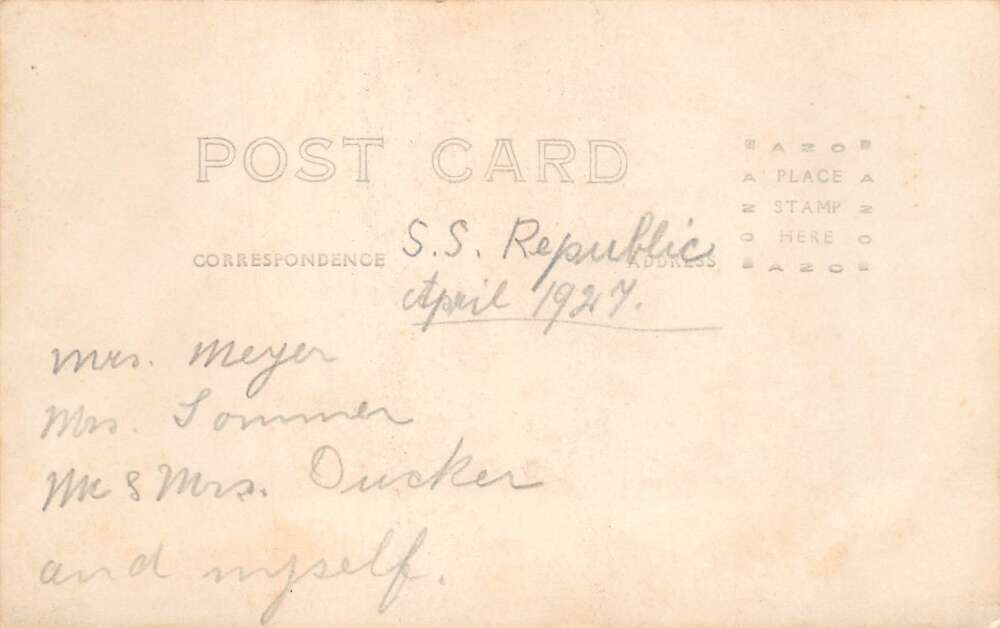 POST CARD
AZO
A PLACE A
Z STAMP Z
O HERE O
AZO
CORRESPONDENCE
ADDRESS
S.S. Republic
April 1927.
Mrs. Meyer
Mrs. Sommer
Mr & Mrs. Ducker
and myself.